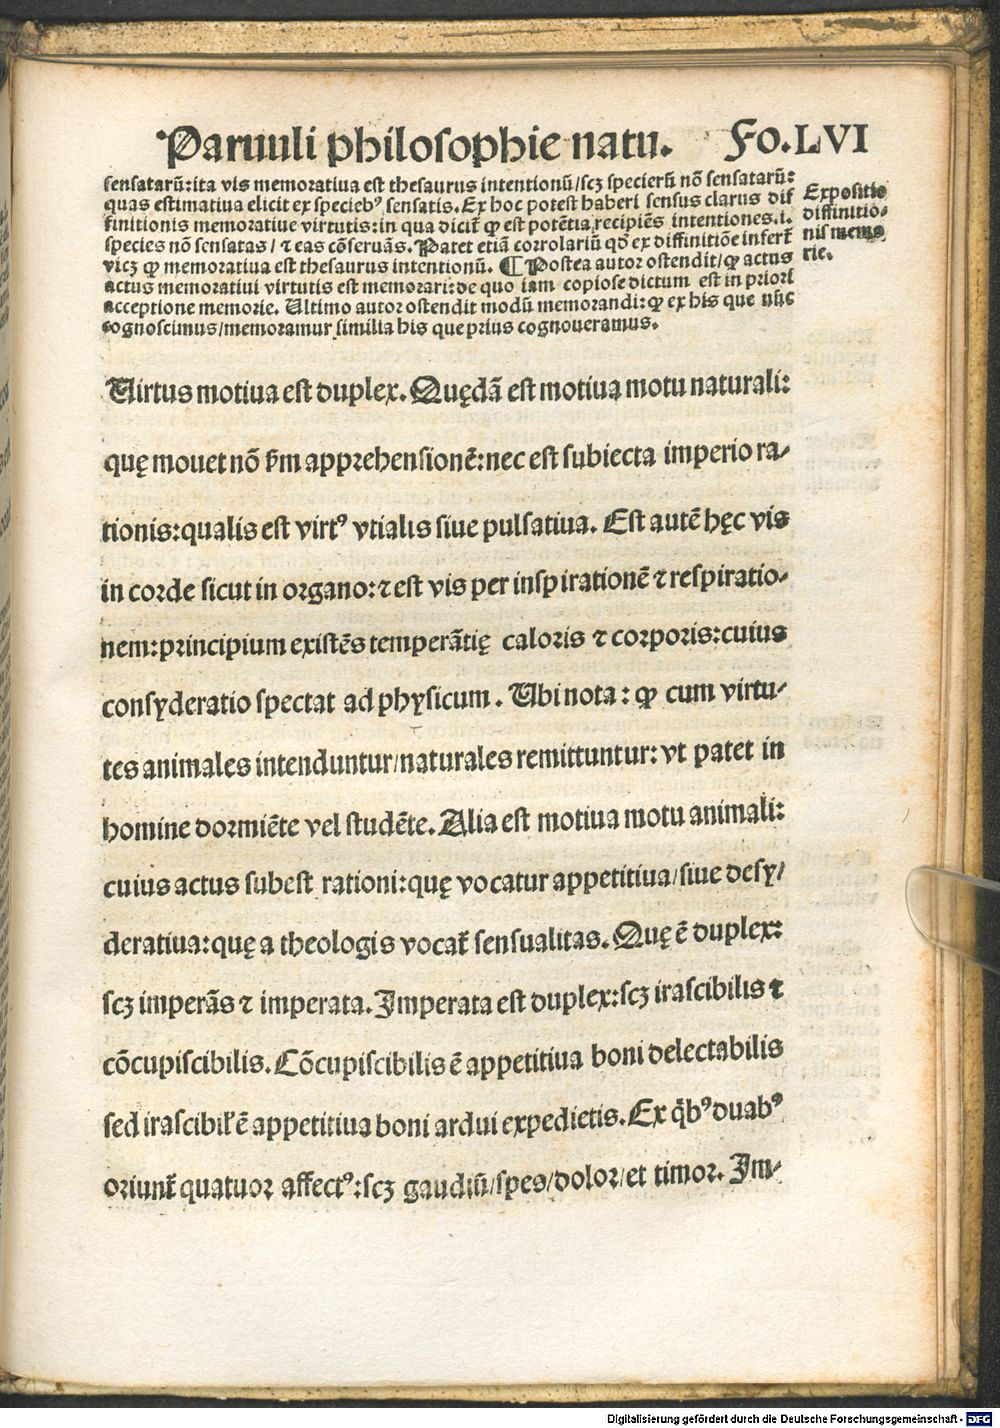 Paruuli philosophie natu. Fo.LVI
sensatarū: ita vis memoratiua est thesaurus intentionū/scꝫ specierū nō sensatarū:
quas estimatiua elicit ex specieb⁹ sensatis. Ex hoc potest haberi sensus clarus dif
finitionis memoratiue virtutis: in qua dicit̄ ꝙ est potētia recipiēs intentiones.i.
species nō sensatas/ ⁊ eas cōseruās. Patet etiā corrolariū qd̄ ex diffinitiōe infert̄
vicꝫ ꝙ memoratiua est thesaurus intentionū. ¶ Postea autor ostendit/ꝙ actus
actus memoratiui virtutis est memorari: de quo iam copiose dictum est in priori
acceptione memorie. Ultimo autor ostendit modū memorandi: ꝙ ex his que nūc
cognoscimus/memoramur similia his que prius cognoueramus.
Expositio
diffinitio-
nis memo
rie.
Uirtus motiua est duplex. Quędā est motiua motu naturali:
quę mouet nō s̄m apprehensionē: nec est subiecta imperio ra-
tionis: qualis est virt⁹ vtialis siue pulsatiua. Est autē hęc vis
in corde sicut in organo: ⁊ est vis per inspirationē ⁊ respiratio-
nem: principium existēs temperātię caloris ⁊ corporis: cuius
consyderatio spectat ad physicum. Ubi nota: ꝙ cum virtu-
tes animales intenduntur/naturales remittuntur: vt patet in
homine dormiēte vel studēte. Alia est motiua motu animali:
cuius actus subest rationi: quę vocatur appetitiua/siue desy-
deratiua: quę a theologis vocat̄ sensualitas. Quę ē duplex:
scꝫ imperās ⁊ imperata. Imperata est duplex: scꝫ irascibilis ⁊
cōcupiscibilis. Cōcupiscibilis ē appetitiua boni delectabilis
sed irascibil̄ ē appetitiua boni ardui expedietis. Ex qb̄⁹ duab⁹
oriunt̄ quatuor affect⁹: scꝫ gaudiū/spes/dolor/et timor. Im-
Digitalisierung gefördert durch die Deutsche Forschungsgemeinschaft - DFG